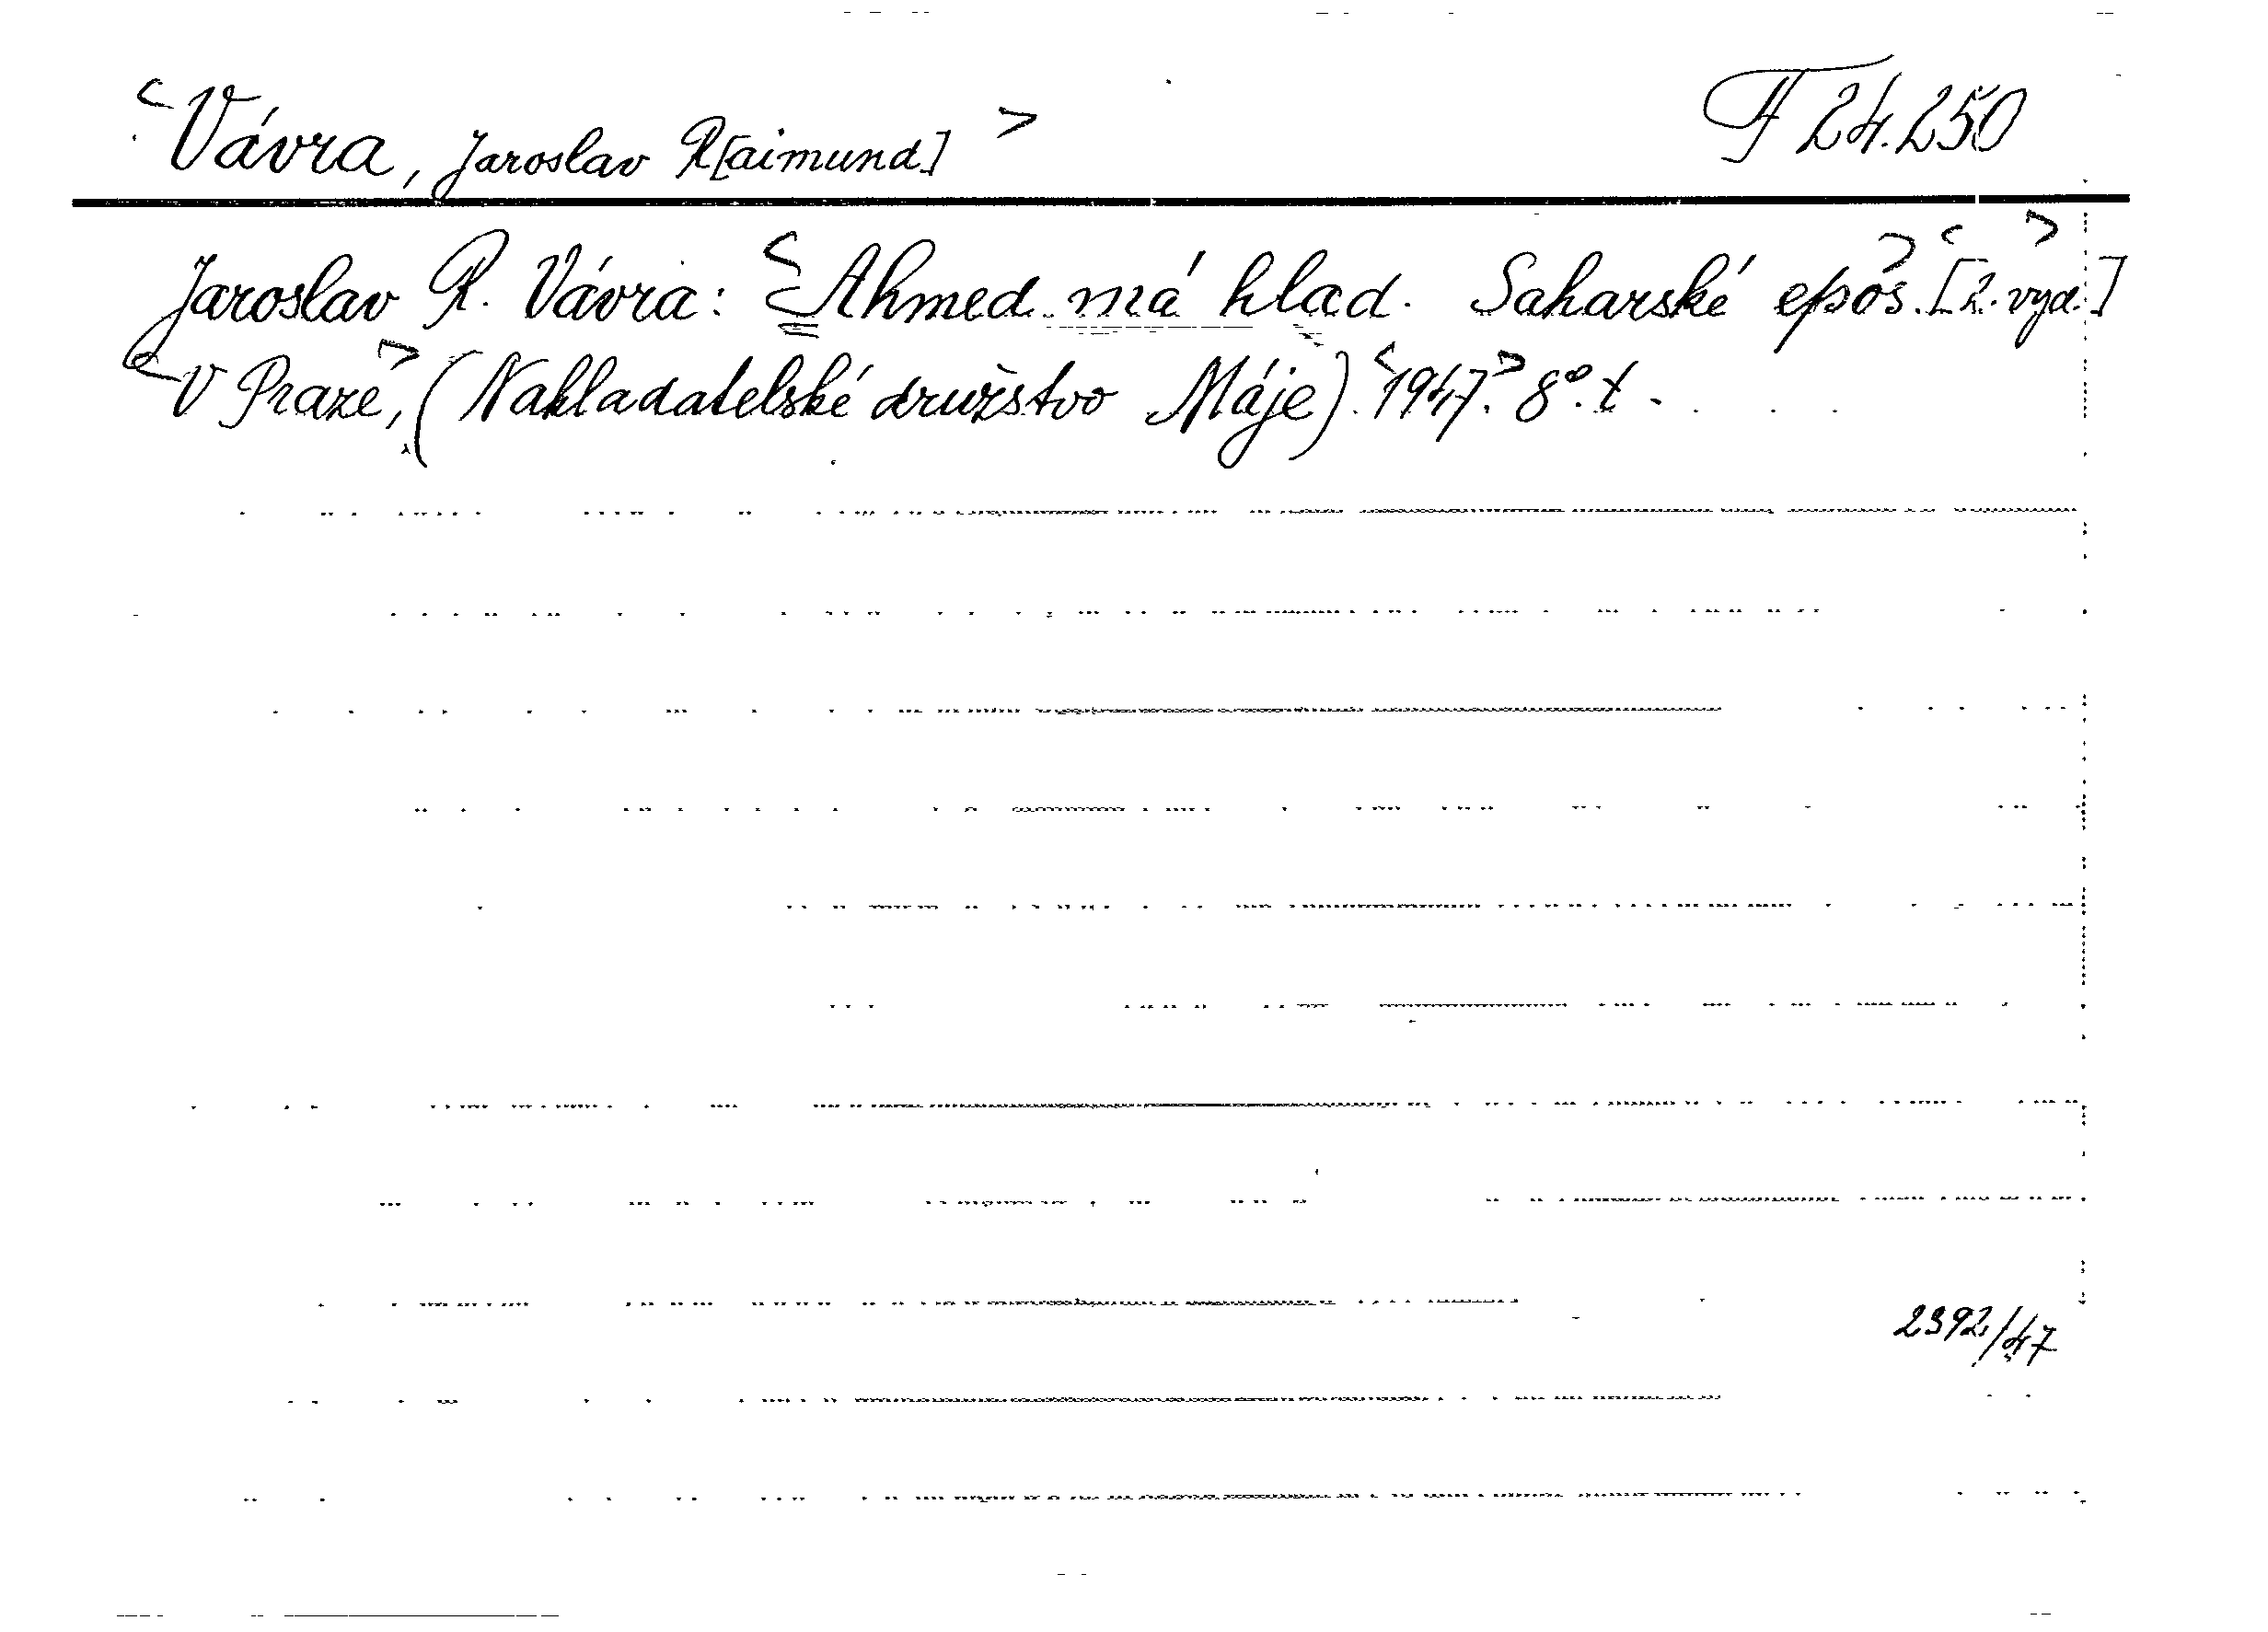 <Vávra, Jaroslav R[aimund]> F 24.250
Jaroslav R. Vávra: <Ahmed má hlad. Saharské epos.> <[2. vyd.]>
<V Praze,> (Nakladatelské družstvo Máje). <1947.> 8°. t.
2392/47